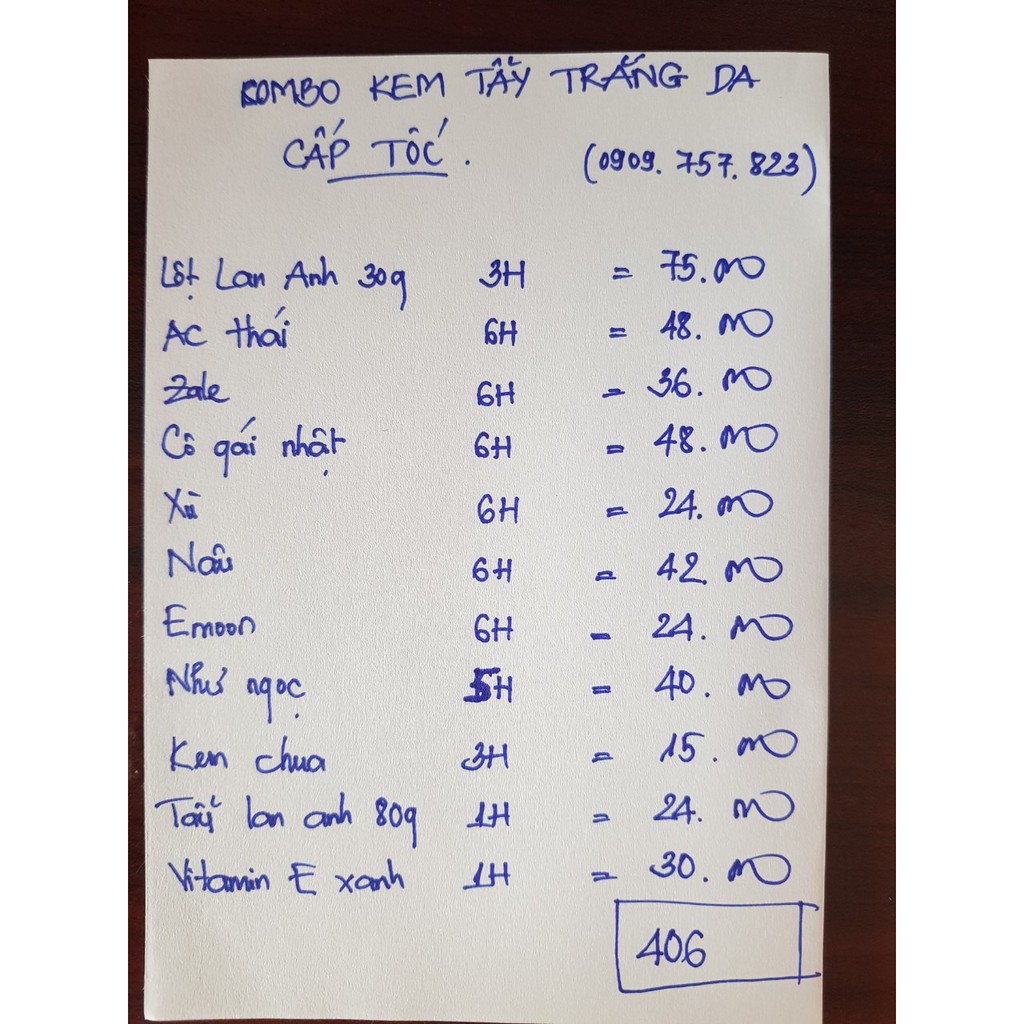 COMBO KEM TẨY TRẮNG DA
CẤP TỐC. (0909.757.823)
Lột Lan Anh 30g 3H = 75.000
AC thái 6H = 48.000
Zale 6H = 36.000
Cô gái nhật 6H = 48.000
Xù 6H = 24.000
Nâu 6H = 42.000
Emoon 6H = 24.000
Như ngọc 5H = 40.000
Kem chua 3H = 15.000
Tẩy lan anh 80g 1H = 24.000
Vitamin E xanh 1H = 30.000
406